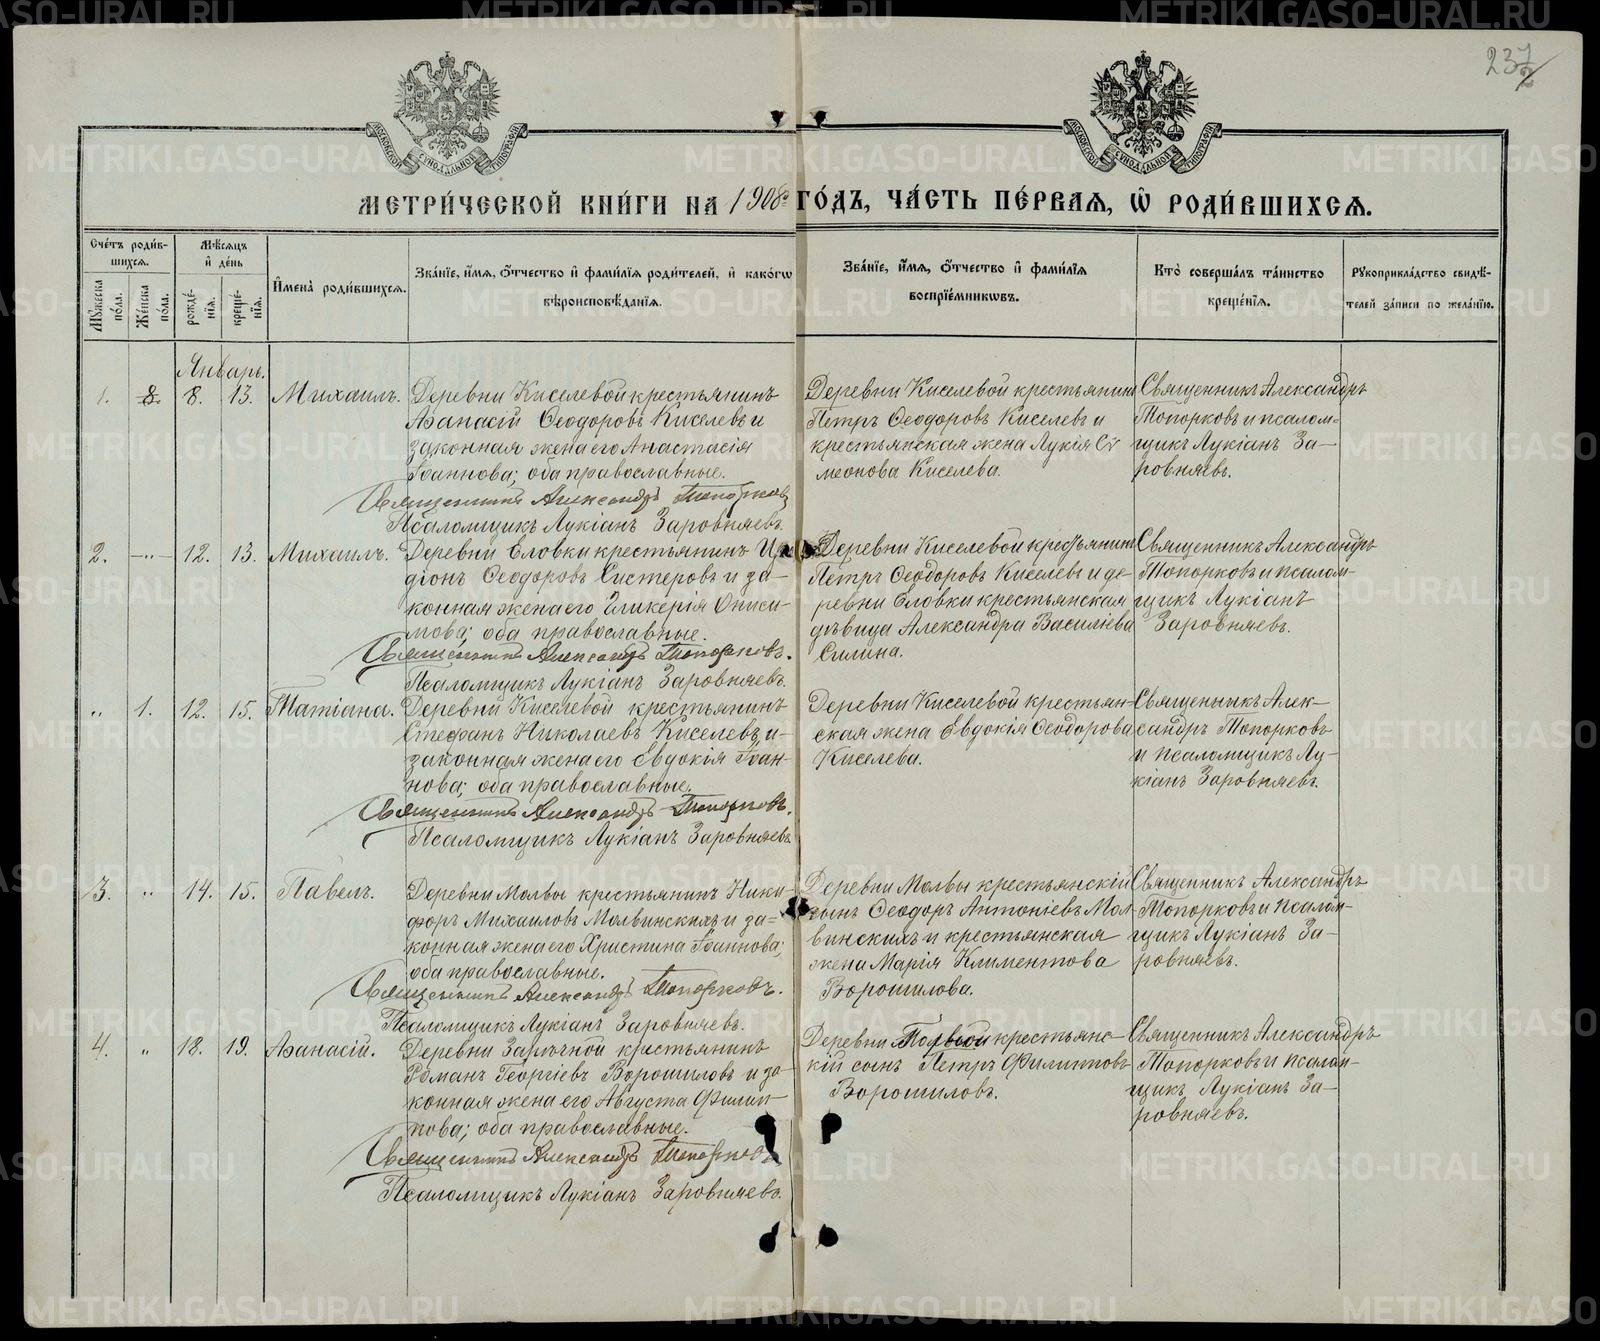 METRIKI.GASO-URAL.RU
237
2
МОСКОВСКОЙ СѴНОДАЛЬНОЙ ТИПОГРАФІИ
МОСКОВСКОЙ СѴНОДАЛЬНОЙ ТИПОГРАФІИ
МЕТРИ́ЧЕСКОЙ КНИ́ГИ НА 1908й ГО́ДЪ, ЧА́СТЬ ПЕ́РВАЯ, Ѡ҆ РОДИ́ВШИХСЯ.
Сче́тъ роди́в-
шихся.
Мꙋ́жеска по́ла.
Же́нска по́ла.
Мѣ́сяцъ
и҆ де́нь
рожде́-
нїя.
креще́-
нїя.
И҆мена̀ роди́вшихся.
Зва́нїе, и҆́мя, ѻ҆́тчество и҆ фами́лїя роди́телей, и҆ како́гѡ
вѣроисповѣ́данїя.
Зва́нїе, и҆́мя, ѻ҆́тчество и҆ фами́лїя
воспрїе́мникѡвъ.
Кто̀ соверша́лъ та́инство
креще́нїя.
Рꙋкоприкла́дство свидѣ́-
телей за́писи по жела́нїю.
Январь.
1. 8. 8. 13. Михаилъ.
Деревни Киселевой крестьянинъ
Аѳанасій Ѳеодоровъ Киселевъ и
законная жена его Анастасія
Іоаннова; оба православные.
Священникъ Александръ Топорковъ
Псаломщикъ Лукіанъ Заровняевъ.
Деревни Киселевой крестьянинъ
Петръ Ѳеодоровъ Киселевъ и
крестьянская жена Лукія Сѵ
меонова Киселева.
Священникъ Александръ
Топорковъ и псалом-
щикъ Лукіанъ За-
ровняевъ.
2. -„- 12. 13. Михаилъ.
Деревни Еловки крестьянинъ Иро
діонъ Ѳеодоровъ Систеровъ и за-
конная жена его Гликерія Ониси-
мова; оба православные.
Священникъ Александръ Топорковъ.
Псаломщикъ Лукіанъ Заровняевъ.
Деревни Киселевой крестьянинъ
Петръ Ѳеодоровъ Киселевъ и де-
ревни Еловки крестьянская
дѣвица Александра Василіева
Силина.
Священникъ Александръ
Топорковъ и псалом-
щикъ Лукіанъ
Заровняевъ.
„ 1. 12. 15. Татіана.
Деревни Киселевой крестьянинъ
Стефанъ Николаевъ Киселевъ и-
законная жена его Евдокія Іоан-
нова; оба православные.
Священникъ Александръ Топорковъ.
Псаломщикъ Лукіанъ Заровняевъ.
Деревни Киселевой крестьян-
ская жена Евдокія Ѳеодорова
Киселева.
Священникъ Алек-
сандръ Топорковъ
и псаломщикъ Лу-
кіанъ Заровняевъ.
3. „ 14. 15. Павелъ.
Деревни Молвы крестьянинъ Ники-
форъ Михаиловъ Молвинскихъ и за=
конная жена его Христина Іоаннова;
оба православные.
Священникъ Александръ Топорковъ.
Псаломщикъ Лукіанъ Заровняевъ.
Деревни Молвы крестьянскій
сынъ Ѳеодоръ Антоніевъ Мол-
винскихъ и крестьянская
жена Марія Климентова
Ворошилова.
Священникъ Александръ
Топорковъ и псалом-
щикъ Лукіанъ За-
ровняевъ.
4. „ 18. 19. Аѳанасій.
Деревни Заречной крестьянинъ
Романъ Георгіевъ Ворошиловъ и за-
конная жена его Августа Филип-
пова; оба православные.
Священникъ Александръ Топорковъ
Псаломщикъ Лукіанъ Заровняевъ.
Деревни крестьянс-
кій сынъ Петръ Филипповъ
Ворошиловъ.
Священникъ Александръ
Топорковъ и псалом-
щикъ Лукіанъ За-
ровняевъ.